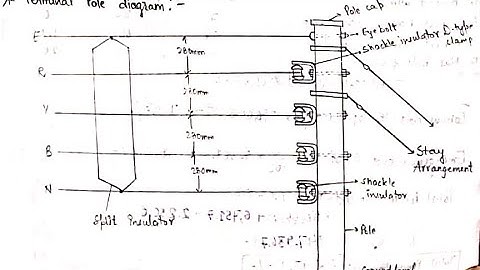 Terminal Pole diagram:-
Pole cap
E
Eyebolt
shackle insulator
D-type clamp
280mm
R
270mm
Y
270mm
B
Stay Arrangement
270mm
N
shackle insulator
Split insulator
Pole
Ground level